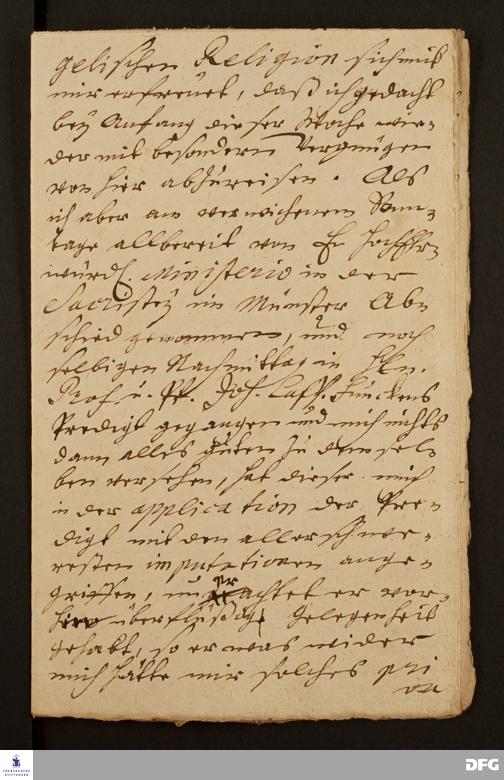 gelischen Religion sich mit
mir erfreuet, daß ich gedacht
bey Anfang dieser Woche wie-
der mit besondern Vergnügen
von hier abzureisen. Als
ich aber am verwichenem Sonn-
tage allbereit von Er HochEhr-
würd. Ministerio in der
Sacristey im Münster Ab-
schied genommen, und noch
selbigen Nachmittag in Hln.
Prof u. Joh. Casp. Funckens
Predigt gegangen und mich nichts
dann alles guten zu demsel-
ben versehen, hat dieser mich
in der application der Pre-
digt mit den allerschwe-
resten imputationen ange-
griffen, unerachtet er vor-
hero überflüßige Gelegenheit
gehabt, so er was wider
mich hätte mir solches pri
va
FRANCKESCHE STIFTUNGEN
DFG